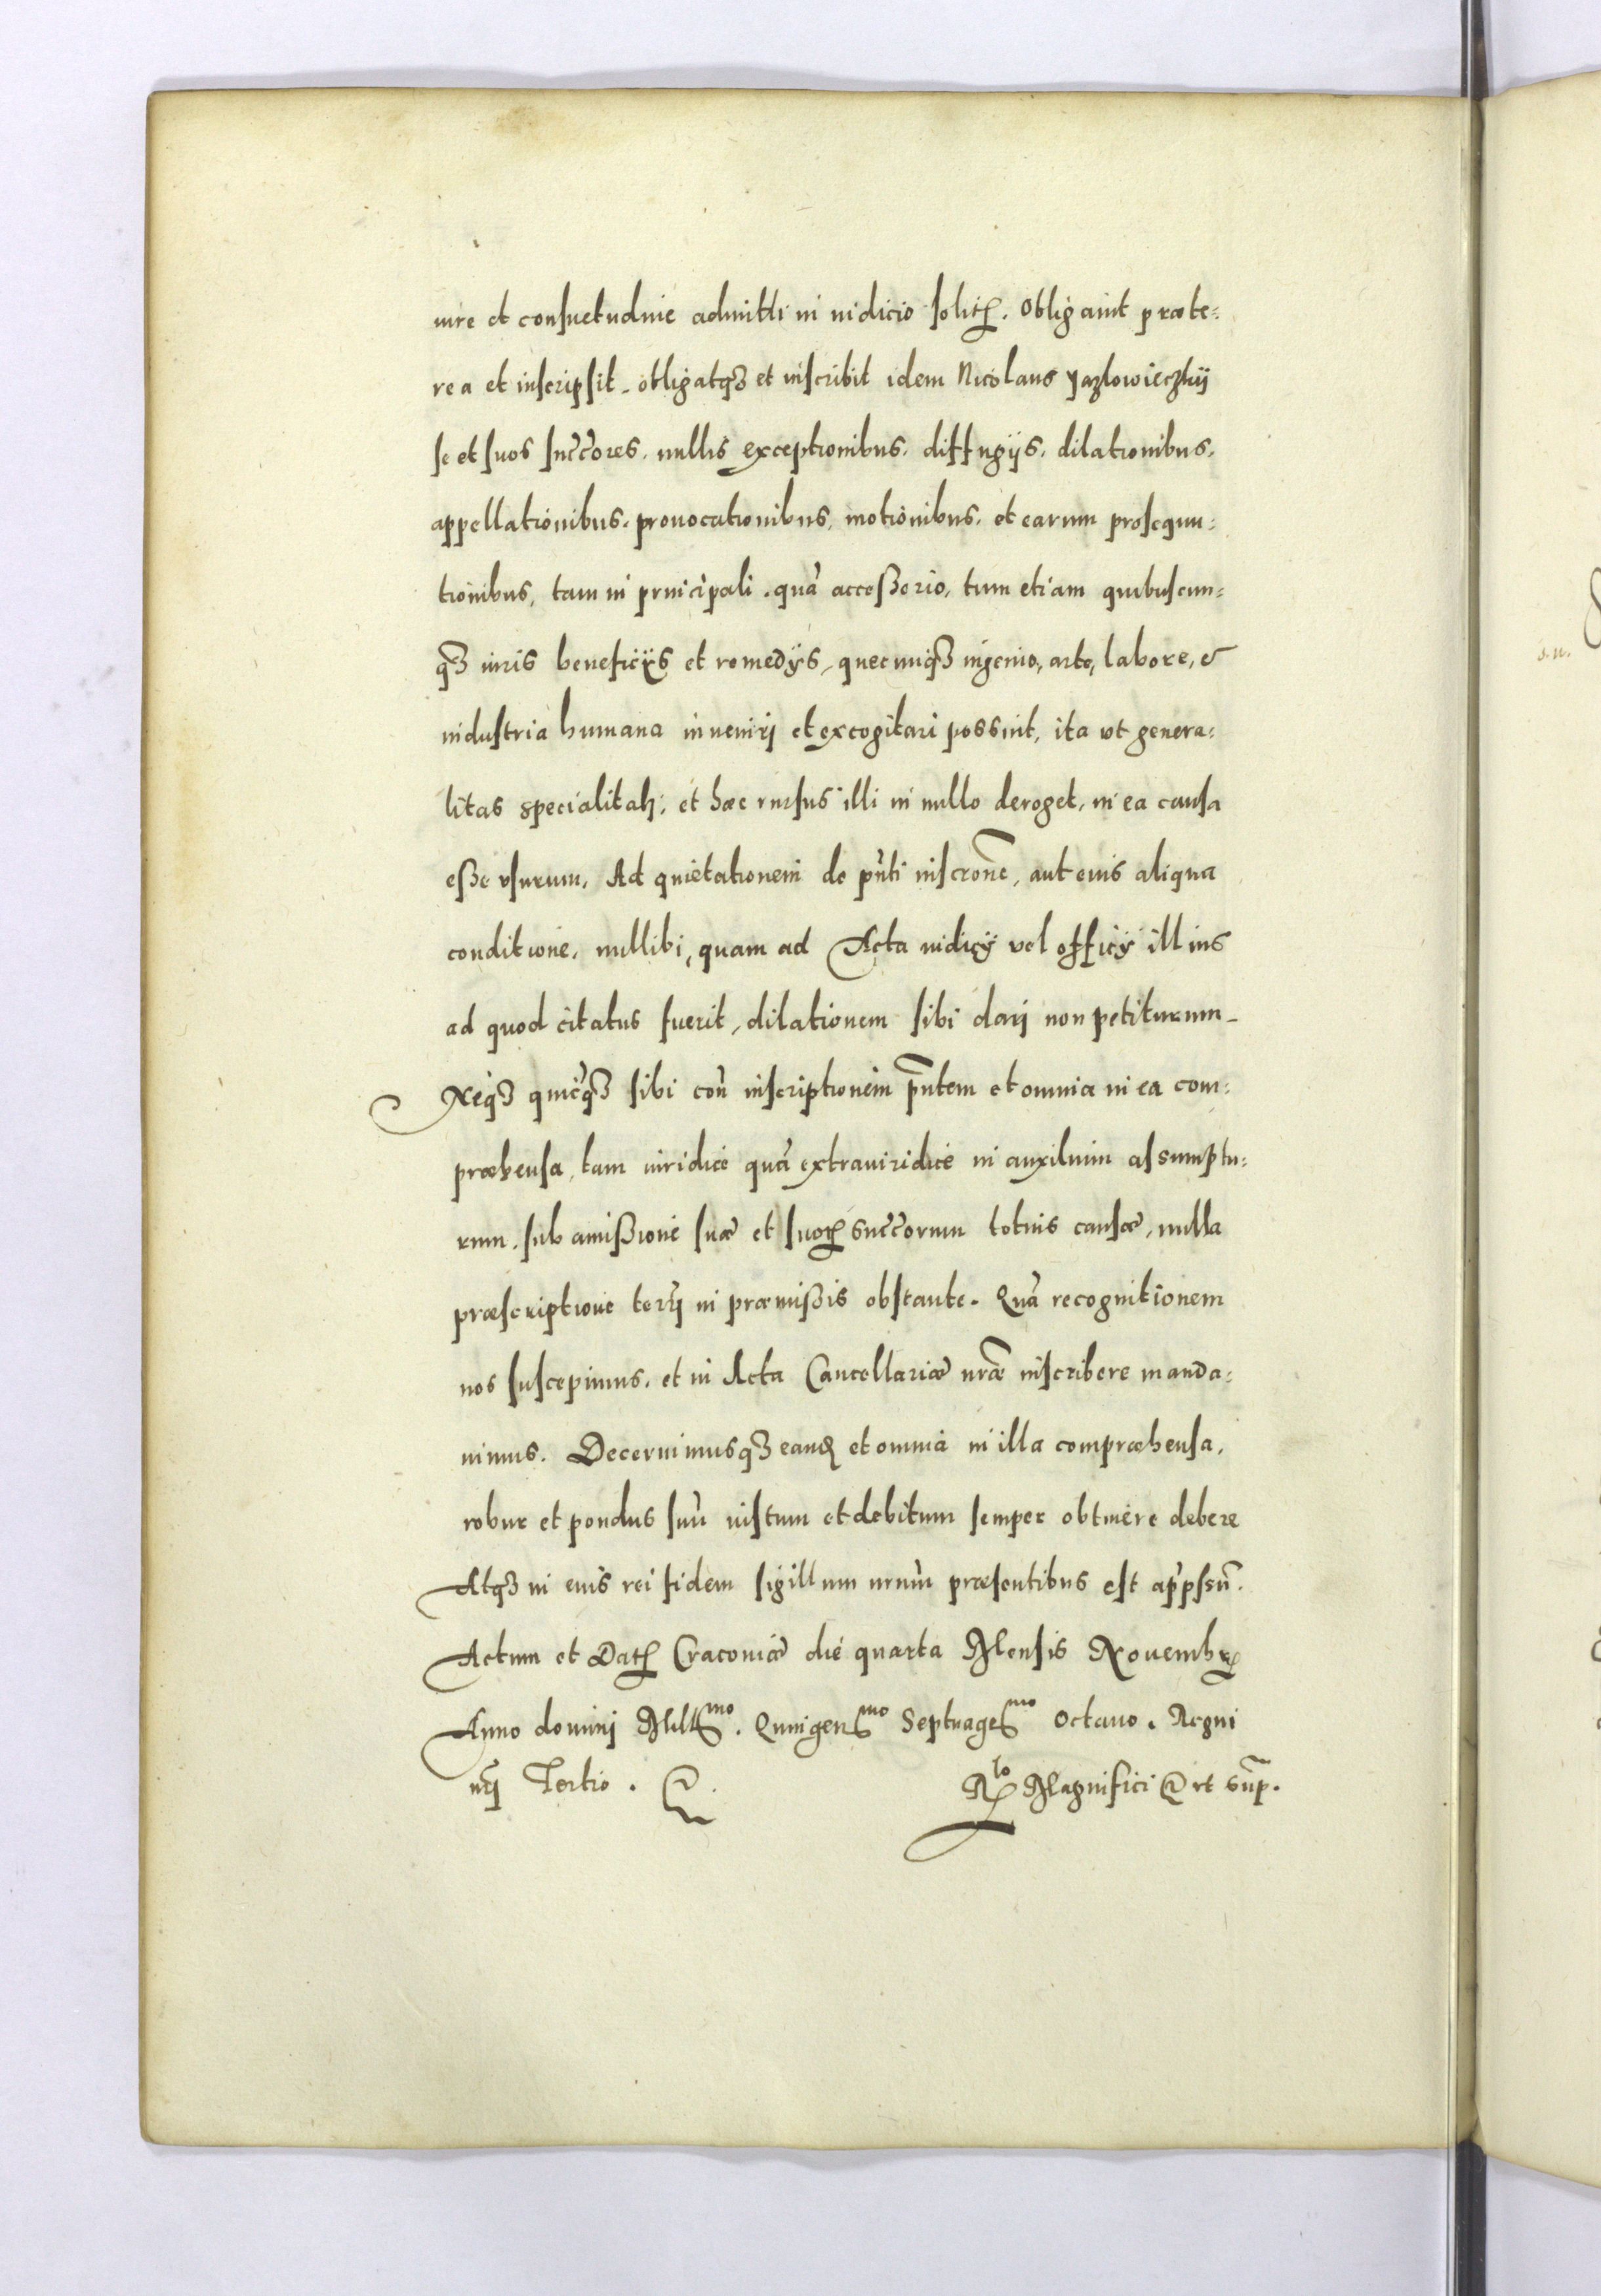 iure et consuetudine admitti in iudicio solitꝝ. Obligauit præte:
rea et inscripsit. obligatqꝫ et inscribit idem Nicolaus Jazlowieczkij
se et suos succ̃cores. nullis exceptionibus. diffugijs. dilationibus.
appellationibus. prouocationibus, motionibus. et earum prosequu:
tionibus, tam in principali. quã accessorio, tum etiam quibuscun:
qꝫ iuris beneficijs et remedijs, quecunqꝫ ingenio, arte, labore, &
industria humana inuenirj et excogitari possint, ita vt genera:
litas specialitati: et hæc rursus illi in nullo deroget, in ea causa
esse vsurum. Ad quietationem de pñti inscrõne, aut eius aliqua
conditione, nullibi, quam ad Acta iudicij vel officij illius
ad quod citatus fuerit, dilationem sibi darj non petiturum.
Neqꝫ quicqꝫ sibi coñ inscriptionem pñtem et omnia in ea com:
præhensa, tam iuridice quã extrauiridice in auxilium assumptu:
rum. sub amissione suæ et suorꝝ succ̃corum totius causæ, nulla
præscriptione terrj in præmissis obstante. Quã recognitionem
nos suscepimus. et in Acta Cancellariæ nræ inscribere manda:
uimus. Decernimusqꝫ eandẽ et omnia in illa compræhensa,
robur et pondus suũ iustum et debitum semper obtinere debere
Atqꝫ in eius rei fidem sigillum nrum præsentibus est appssũ.
Actum et Datꝝ Cracouiæ die quarta Mensis Nouembrꝭ
Anno dominj Mill̃mo. Quingenmo Septuagesmo Octauo. Regni
nrj Tertio. &.
Rlo Magnifici & vt sup.